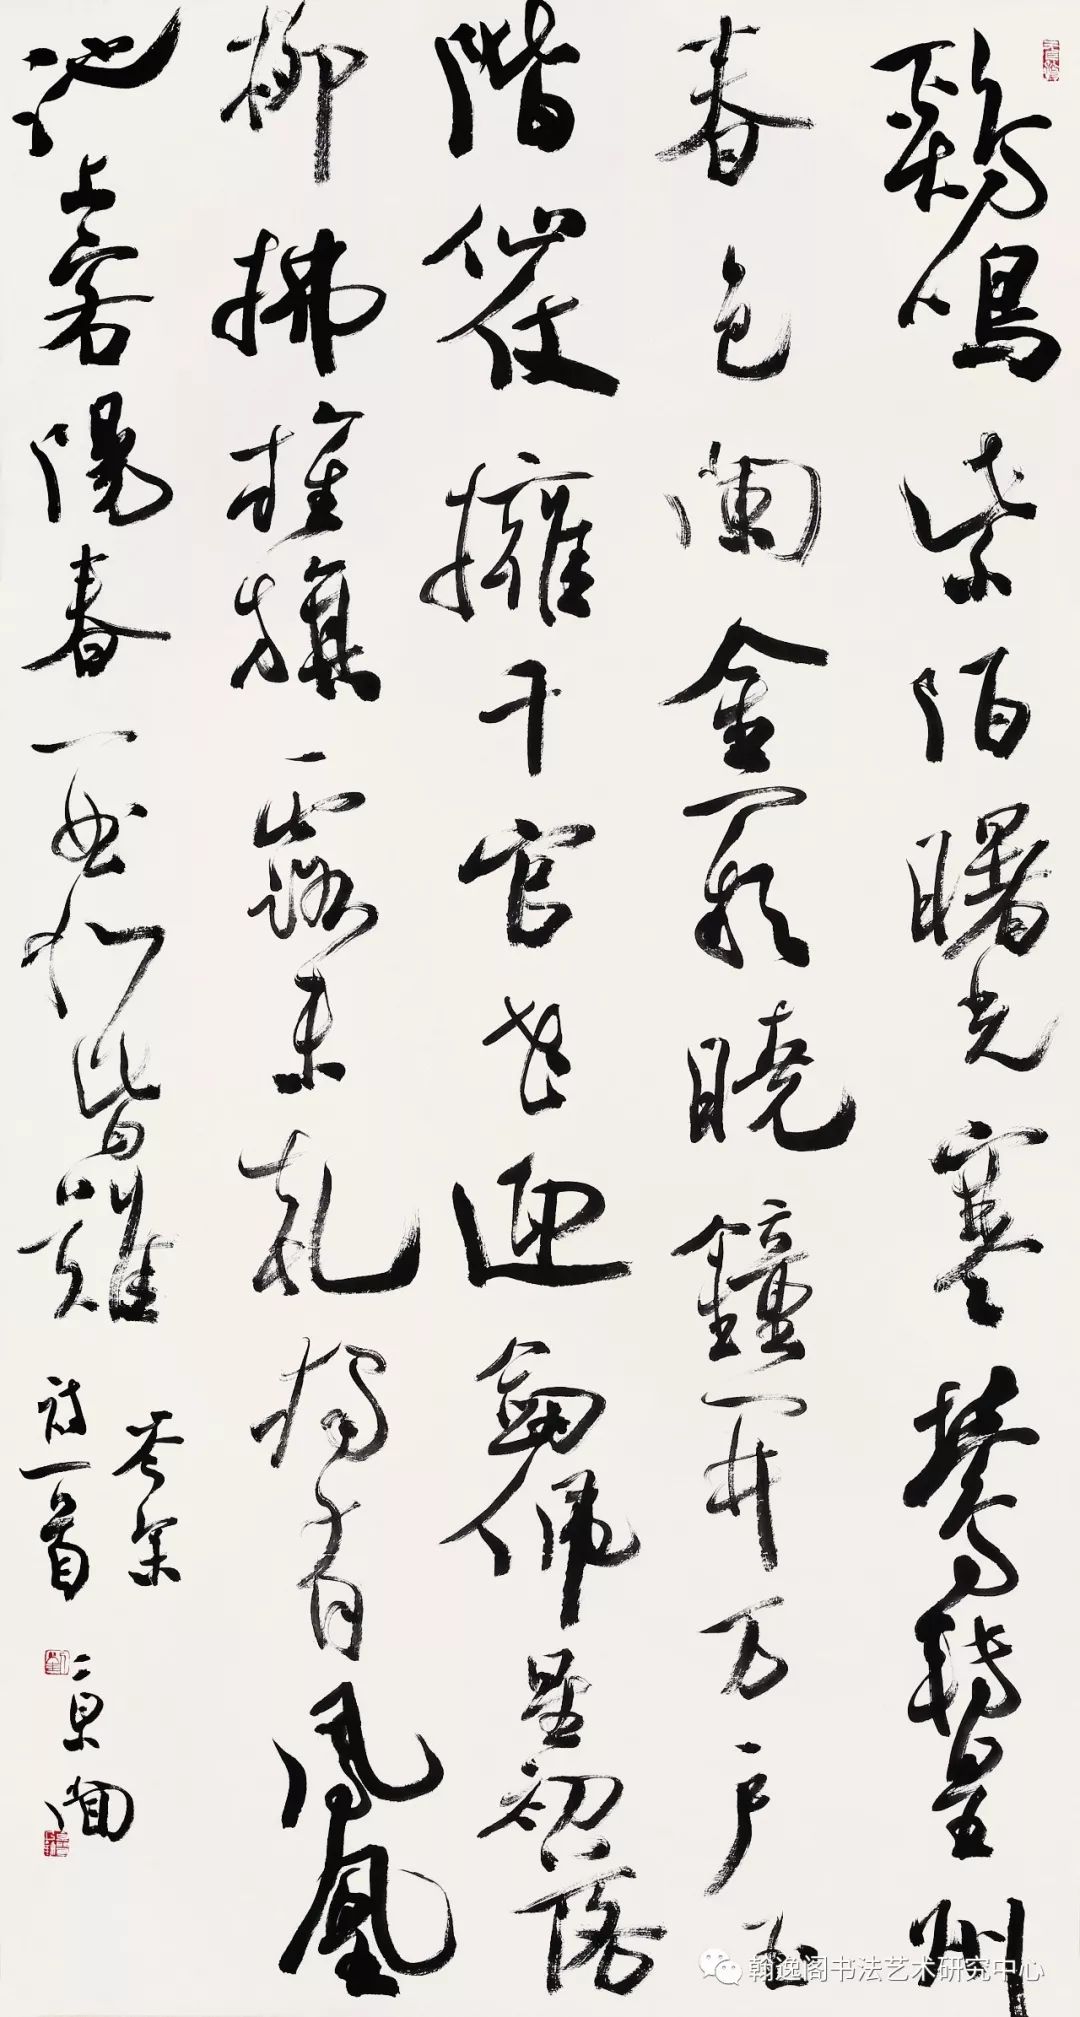 鷄鳴紫陌曙光寒鶯囀皇州
春色闌金闕曉鐘開万户玉
階仙仗擁千官花迎劍佩星初落
柳拂旌旗露未乾獨有鳳凰
池上客陽春一曲和皆難
岑參
詩一首
翰逸阁书法艺术研究中心